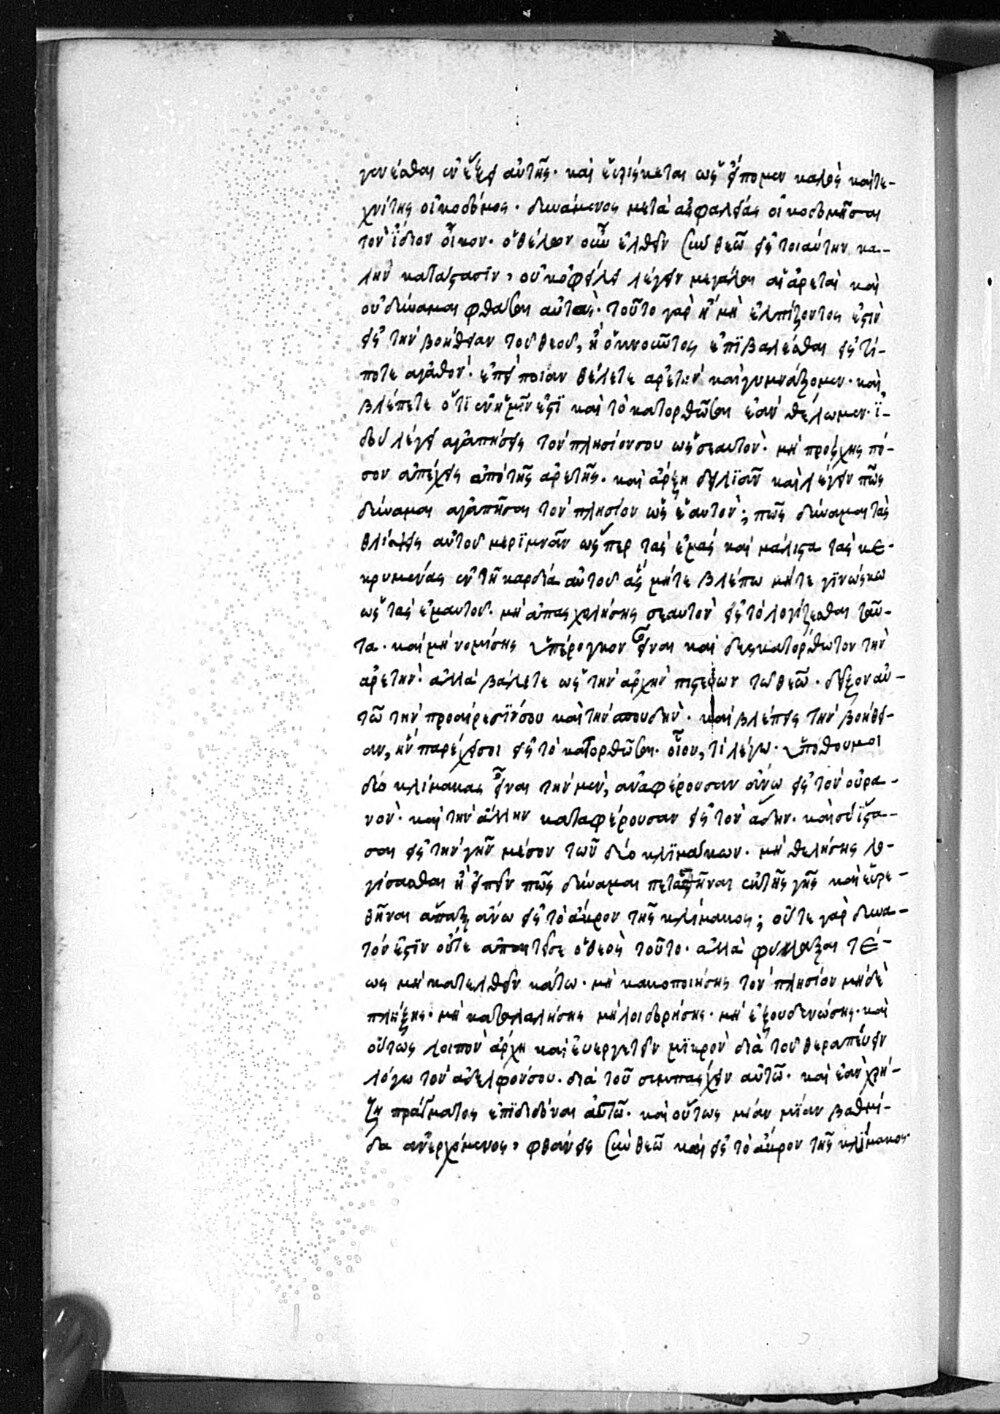 γενέσθαι ἐν ἕξει αὐτῆς· καὶ εὑρίσκεται ὡς εἴπομεν καλὸς καὶ τε-
χνίτης οἰκοδόμος· δυνάμενος μετὰ ἀσφαλείας οἰκοδομῆσαι
τὸν ἴδιον οἶκον· ὁ θέλων οὖν ἐλθεῖν σὺν θεῶ εἰς τοιαύτην κα-
λὴν κατάστασιν, οὐκ ὀφείλει λέγειν μεγάλαι αἱ ἀρεταὶ καὶ
οὐ δύναμαι φθάσαι αὐτάς· τοῦτο γὰρ ἢ μὴ ἐλπίζοντός ἐστιν
εἰς τὴν βοήθειαν τοῦ θεοῦ, ἢ ὀκνοῦντος ἐπιβαλέσθαι εἰς τί-
ποτε ἀγαθόν· ἐπεὶ ποίαν θέλετε ἀρετὴν καὶ γυμνάζομεν· καὶ
βλέπετε ὅτι ἐν ἡμῖν ἐστι καὶ τὸ κατορθῶσαι ἐὰν θέλωμεν· ἰ-
δοὺ λέγει ἀγαπήσεις τὸν πλησίον σου ὡς σεαυτόν· μὴ πρόσχης πό-
σον ἀπέχεις ἀπὸ τῆς ἀρετῆς· καὶ ἄρξη δειλιᾶν καὶ λέγειν πῶς
δύναμαι ἀγαπῆσαι τὸν πλησίον ὡς ἑαυτόν; πῶς δύναμαι τὰς
θλίψεις αὐτοῦ μεριμνᾶν ὥσπερ τὰς ἐμὰς καὶ μάλιστα τὰς κε-
κρυμμένας ἐν τῆ καρδία αὐτοῦ ἃς μήτε βλέπω μήτε γινώσκω
ὡς τὰς ἐμαυτοῦ· μὴ ἀπασχολήσης σεαυτὸν εἰς τὸ λογίζεσθαι ταῦ-
τα· καὶ μὴ νομίσης ὑπέρογκον εἶναι καὶ δυσκατόρθωτον τὴν
ἀρετήν· ἀλλὰ βάλετε ὡς τὴν ἀρχὴν πιστεύων τῶ θεῶ· δεῖξον αὐ-
τῶ τὴν προαίρεσίν σου καὶ τὴν σπουδήν· καὶ βλέπεις τὴν βοήθει-
αν, ἣν παρέχει σοι εἰς τὸ κατορθῶσαι· οἷον, τί λέγω· ὑπόθου μοι
δύο κλίμακας εἶναι τὴν μὲν, ἀναφέρουσαν ἄνω εἰς τὸν οὐρα-
νόν· καὶ τὴν ἄλλην καταφέρουσαν εἰς τὸν ἅδην· καὶ σὺ ἵστα-
σαι εἰς τὴν γῆν μέσον τῶν δύο κλιμάκων· μὴ θελήσης λο-
γίσασθαι ἢ εἰπεῖν πῶς δύναμαι πετασθῆναι ἐκ τῆς γῆς καὶ εὑρε-
θῆναι ἅπαξ ἄνω εἰς τὸ ἄκρον τῆς κλίμακος; οὔτε γὰρ δυνα-
τόν ἐστιν οὔτε ἀπαιτεῖ σε ὁ θεὸς τοῦτο· ἀλλὰ φύλλαξαι τέ-
ως μὴ κατελθεῖν κάτω· μὴ κακοποιήσης τὸν πλησίον μηδὲ
πλήξης· μὴ καταλαλήσης μὴ λοιδορήσης· μὴ ἐξουδενώσης· καὶ
οὕτως λοιπὸν ἄρχη καὶ εὐεργετεῖν μικρὸν διὰ τοῦ θεραπεύειν
λόγω τὸν ἀδελφόν σου· διὰ τοῦ συμπασχειν αὐτῶ· καὶ ἐὰν χρή-
ζη πράγματος ἐπιδιδόναι αὐτῶ· καὶ οὕτως μίαν μίαν βαθμί-
δα ἀνερχόμενος, φθάνεις σὺν θεῶ καὶ εἰς τὸ ἄκρον τῆς κλίμακος·